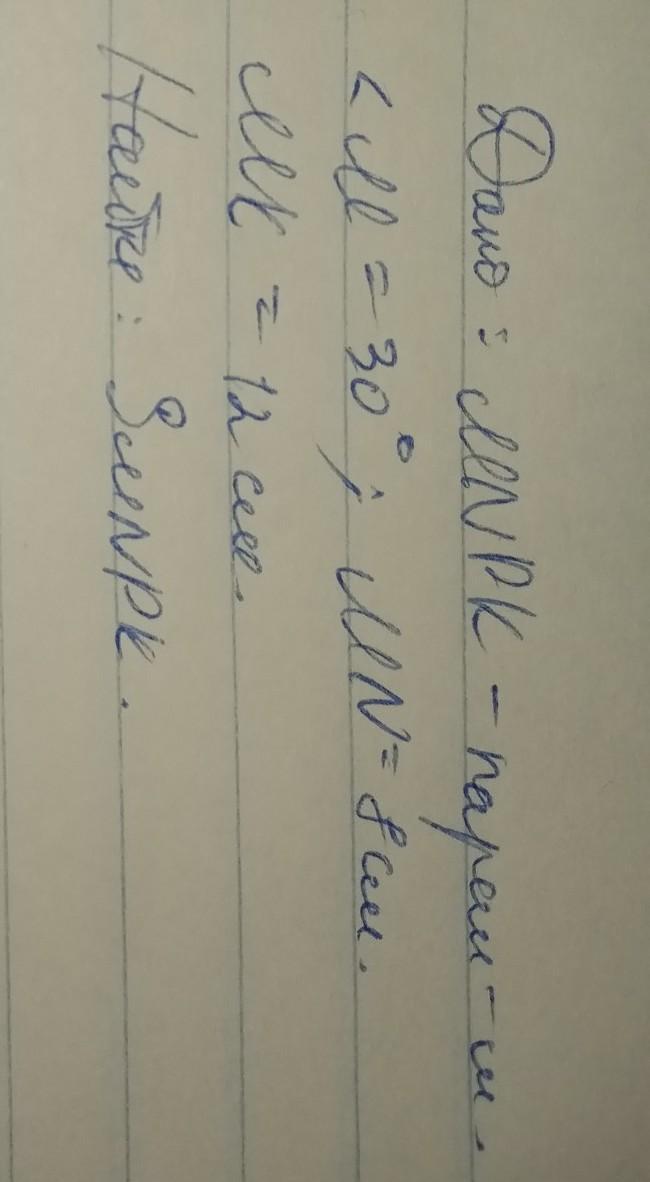 Дано: MNPK - парал-м.
< M = 30°; MN = 8 см.
MK = 12 см.
Найти: SMNPK.